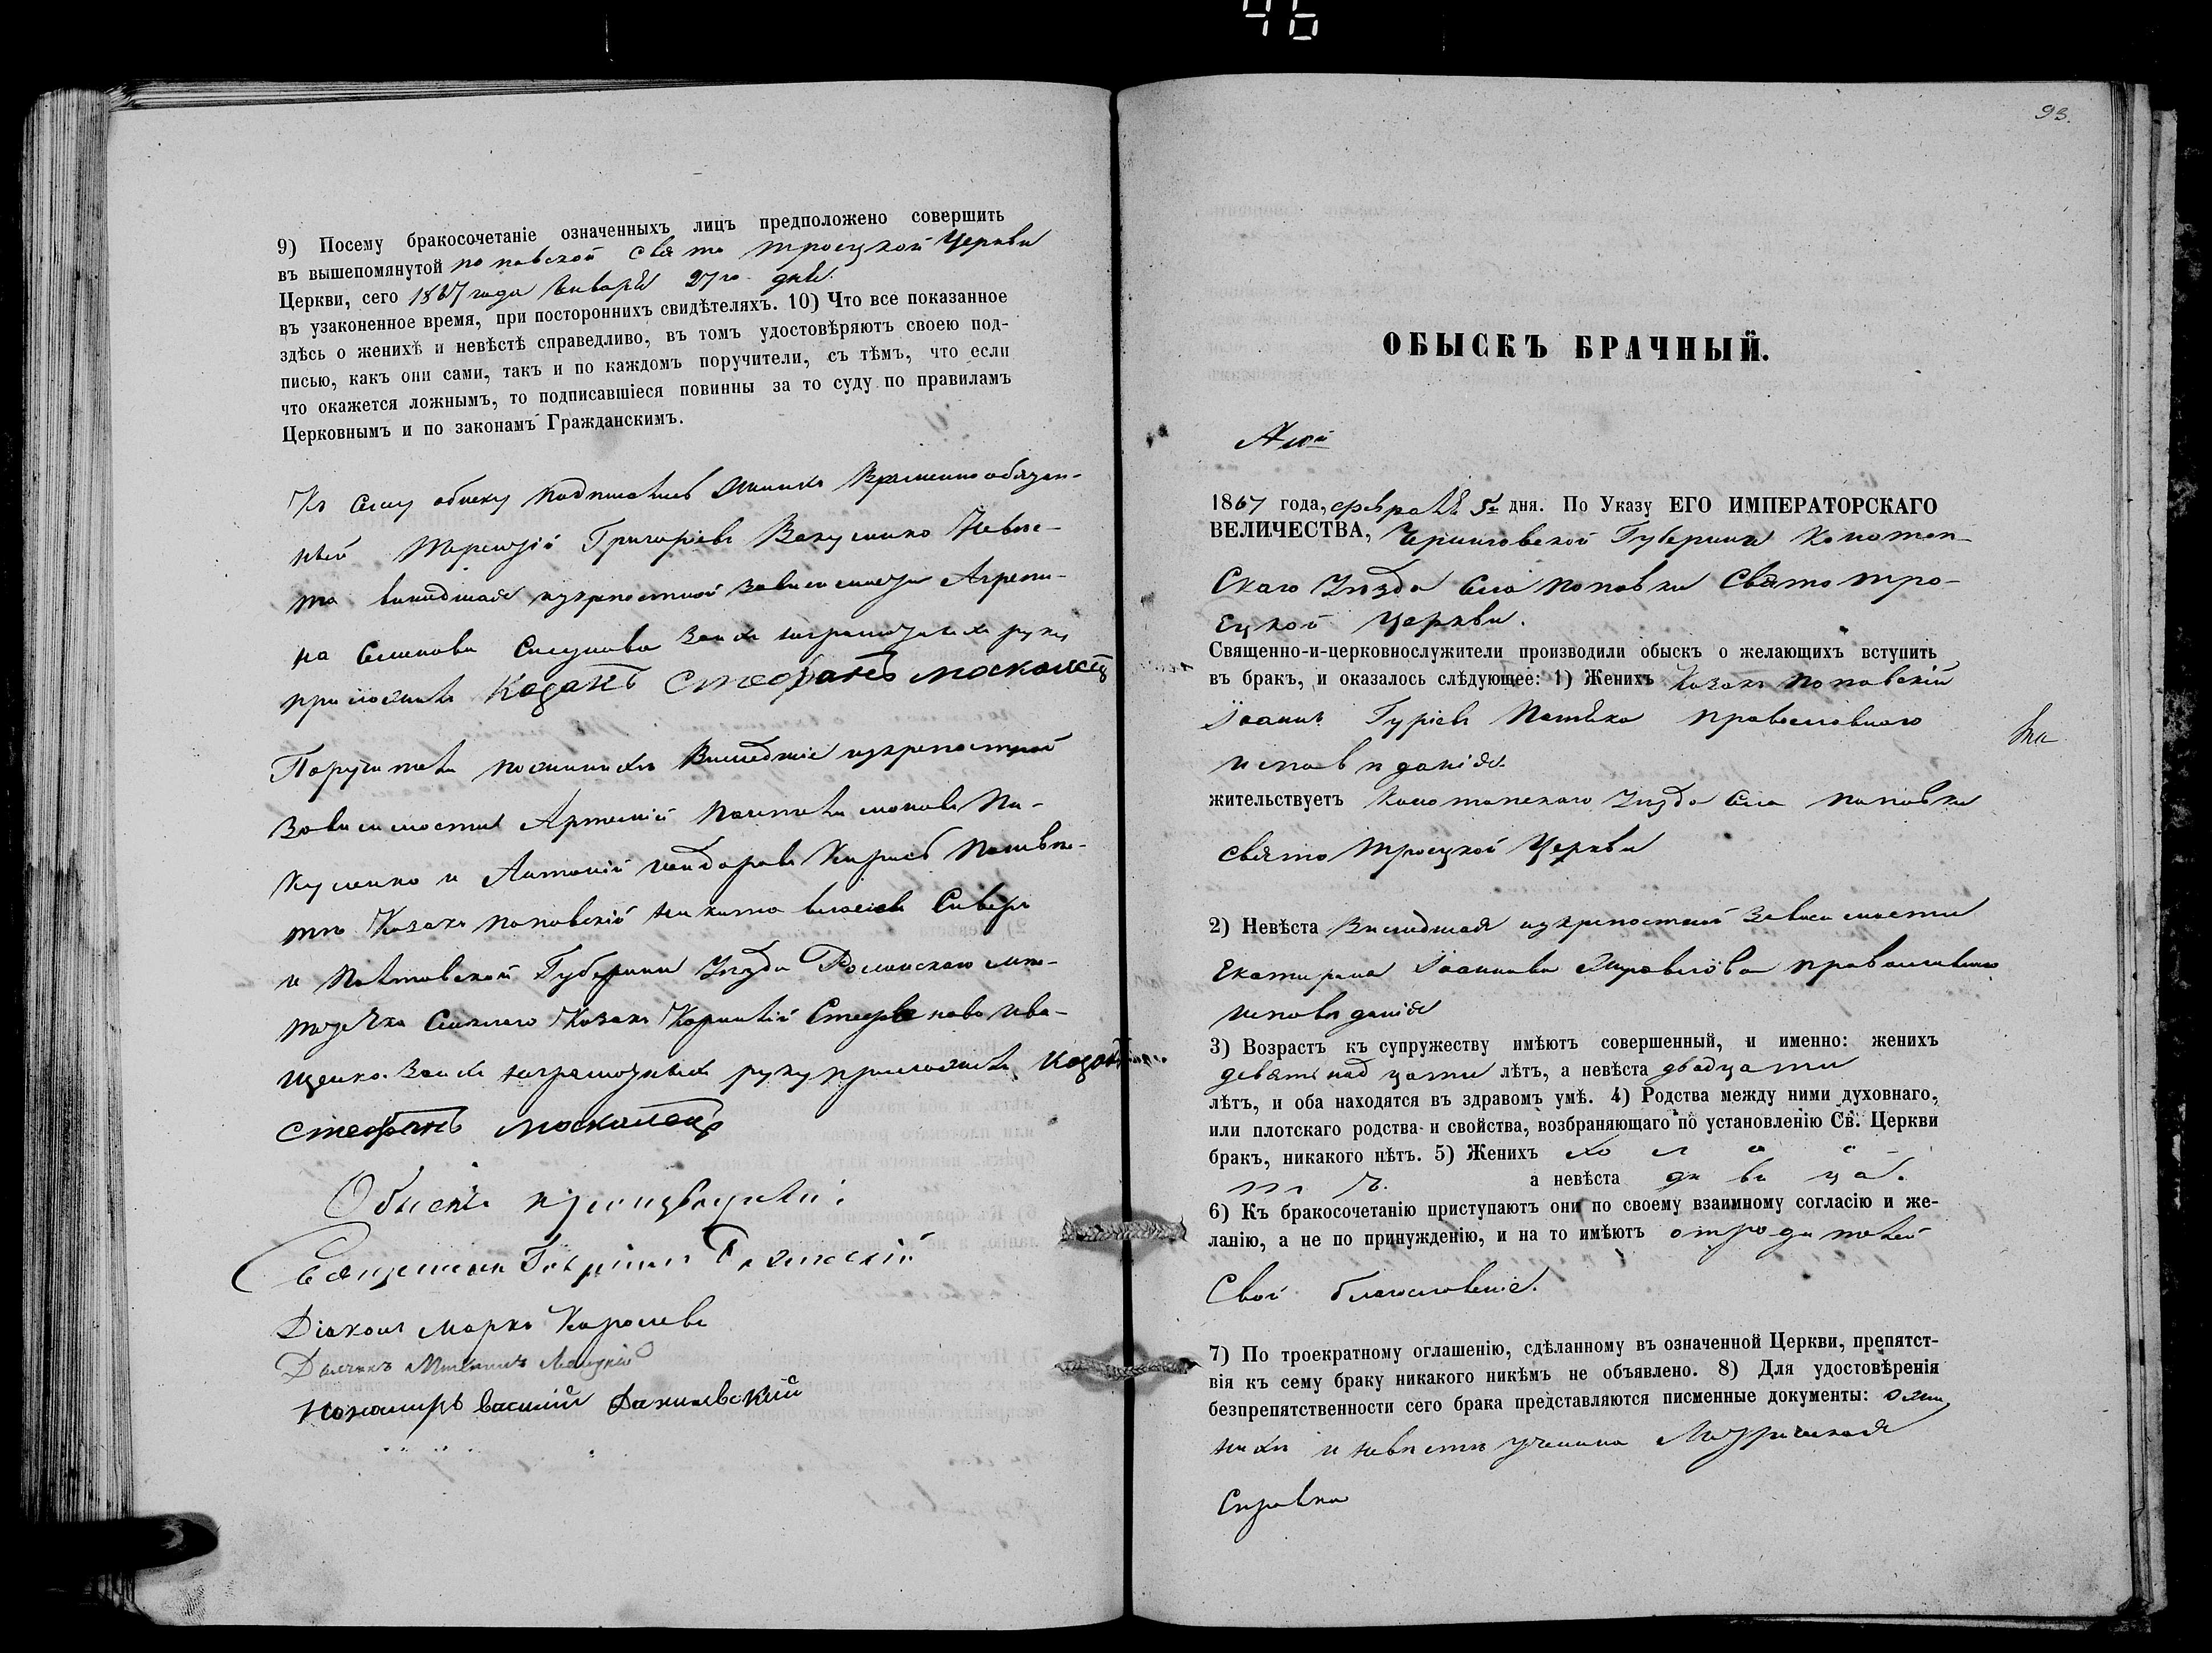 9) Посему бракосочетаніе означенныхъ лицъ предположено совершить
въ вышепомянутой поповской свято троецкой Церкви
Церкви, сего 1867 года Января 27го дня
въ узаконенное время, при постороннихъ свидѣтеляхъ. 10) Что все показанное
здѣсь о женихѣ и невѣстѣ справедливо, въ томъ удостовѣряютъ своею под-
писью, какъ они сами, такъ и по каждомъ поручители, съ тѣмъ, что если
что окажется ложнымъ, то подписавшіеся повинны за то суду по правиламъ
Церковнымъ и по законамъ Гражданскимъ.
Къ сему обыску подписались Женихъ Временнообязан-
ный Григоріевъ Вакуленко Невѣс-
та вышедшая изкрепостной зависимости Агрепи-
на Семенова За ихъ неграмотныхъ руку
приложилъ Козакъ Стефанъ москалецъ
Поручители по женихѣ Вышедшіе изкрепостной
Зависимости Артемій
и Антоній по невѣс-
тѣ Козакъ поповскій никита
и Полтавской Губерніи Уѣзда Роменскаго мѣс-
течка Козакъ Корнилій Стефановъ Ива-
щенко. За ихъ неграмотныхъ руку приложилъ Козакъ
Стефанъ москалецъ
Обыскъ производили:
Священникъ
Діаконъ Марко Королевъ
Дьячекъ
Пономарь Василій Данилевскій
46
93.
ОБЫСКЪ БРАЧНЫЙ.
1867 года, февраля 5 дня. По Указу ЕГО ИМПЕРАТОРСКАГО
ВЕЛИЧЕСТВА, Черниговской Губерніи Конотоп-
скаго Уѣзда Села поповки Свято тро-
ецкой Церкви.
Священно-и-церковнослужители производили обыскъ о желающихъ вступить
въ бракъ, и оказалось слѣдующее: 1) Женихъ Козакъ поповскій
Іоаннъ Гуріевъ православнаго
исповѣданія.
жительствуетъ Конотопскаго Уѣзда Села поповки
свято троецкой Церкви
2) Невѣста Вышедшая изкрепостной зависимости
Екатерина Іоаннова православнаго
исповѣданія
3) Возрастъ къ супружеству имѣютъ совершенный, и именно: женихъ
девятнадцати лѣтъ, а невѣста двадцати
лѣтъ, и оба находятся въ здравомъ умѣ. 4) Родства между ними духовнаго,
или плотскаго родства и свойства, возбраняющаго по установленію Св. Церкви
бракъ, никакого нѣтъ. 5) Женихъ холос-
тъ. а невѣста дѣвица.
6) Къ бракосочетанію приступаютъ они по своему взаимному согласію и же-
ланію, а не по принужденію, и на то имѣютъ отродителей
Свои благословеніе.
7) По троекратному оглашенію, сдѣланному въ означенной Церкви, препятст-
вія къ сему браку никакого никѣмъ не объявлено. 8) Для удостовѣренія
безпрепятственности сего брака представляются писменные документы: о же-
нихѣ и невѣстѣ учинена Метрическая
Справка